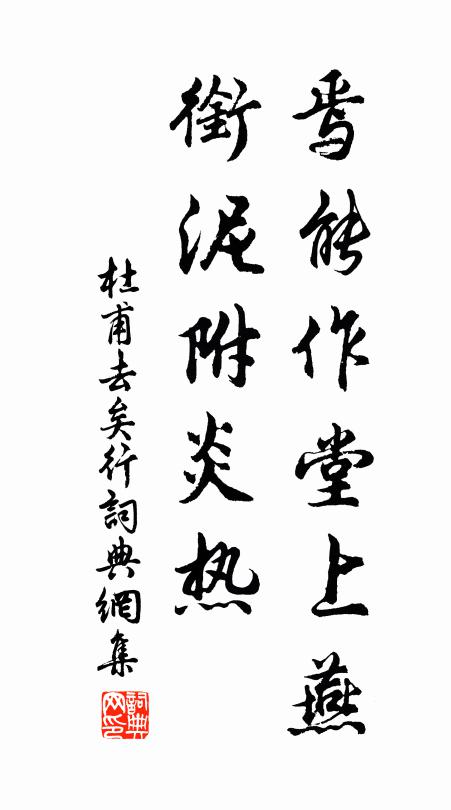 焉能作堂上燕
銜泥附炎热
杜甫去矣行詞典網集
詞典
网印